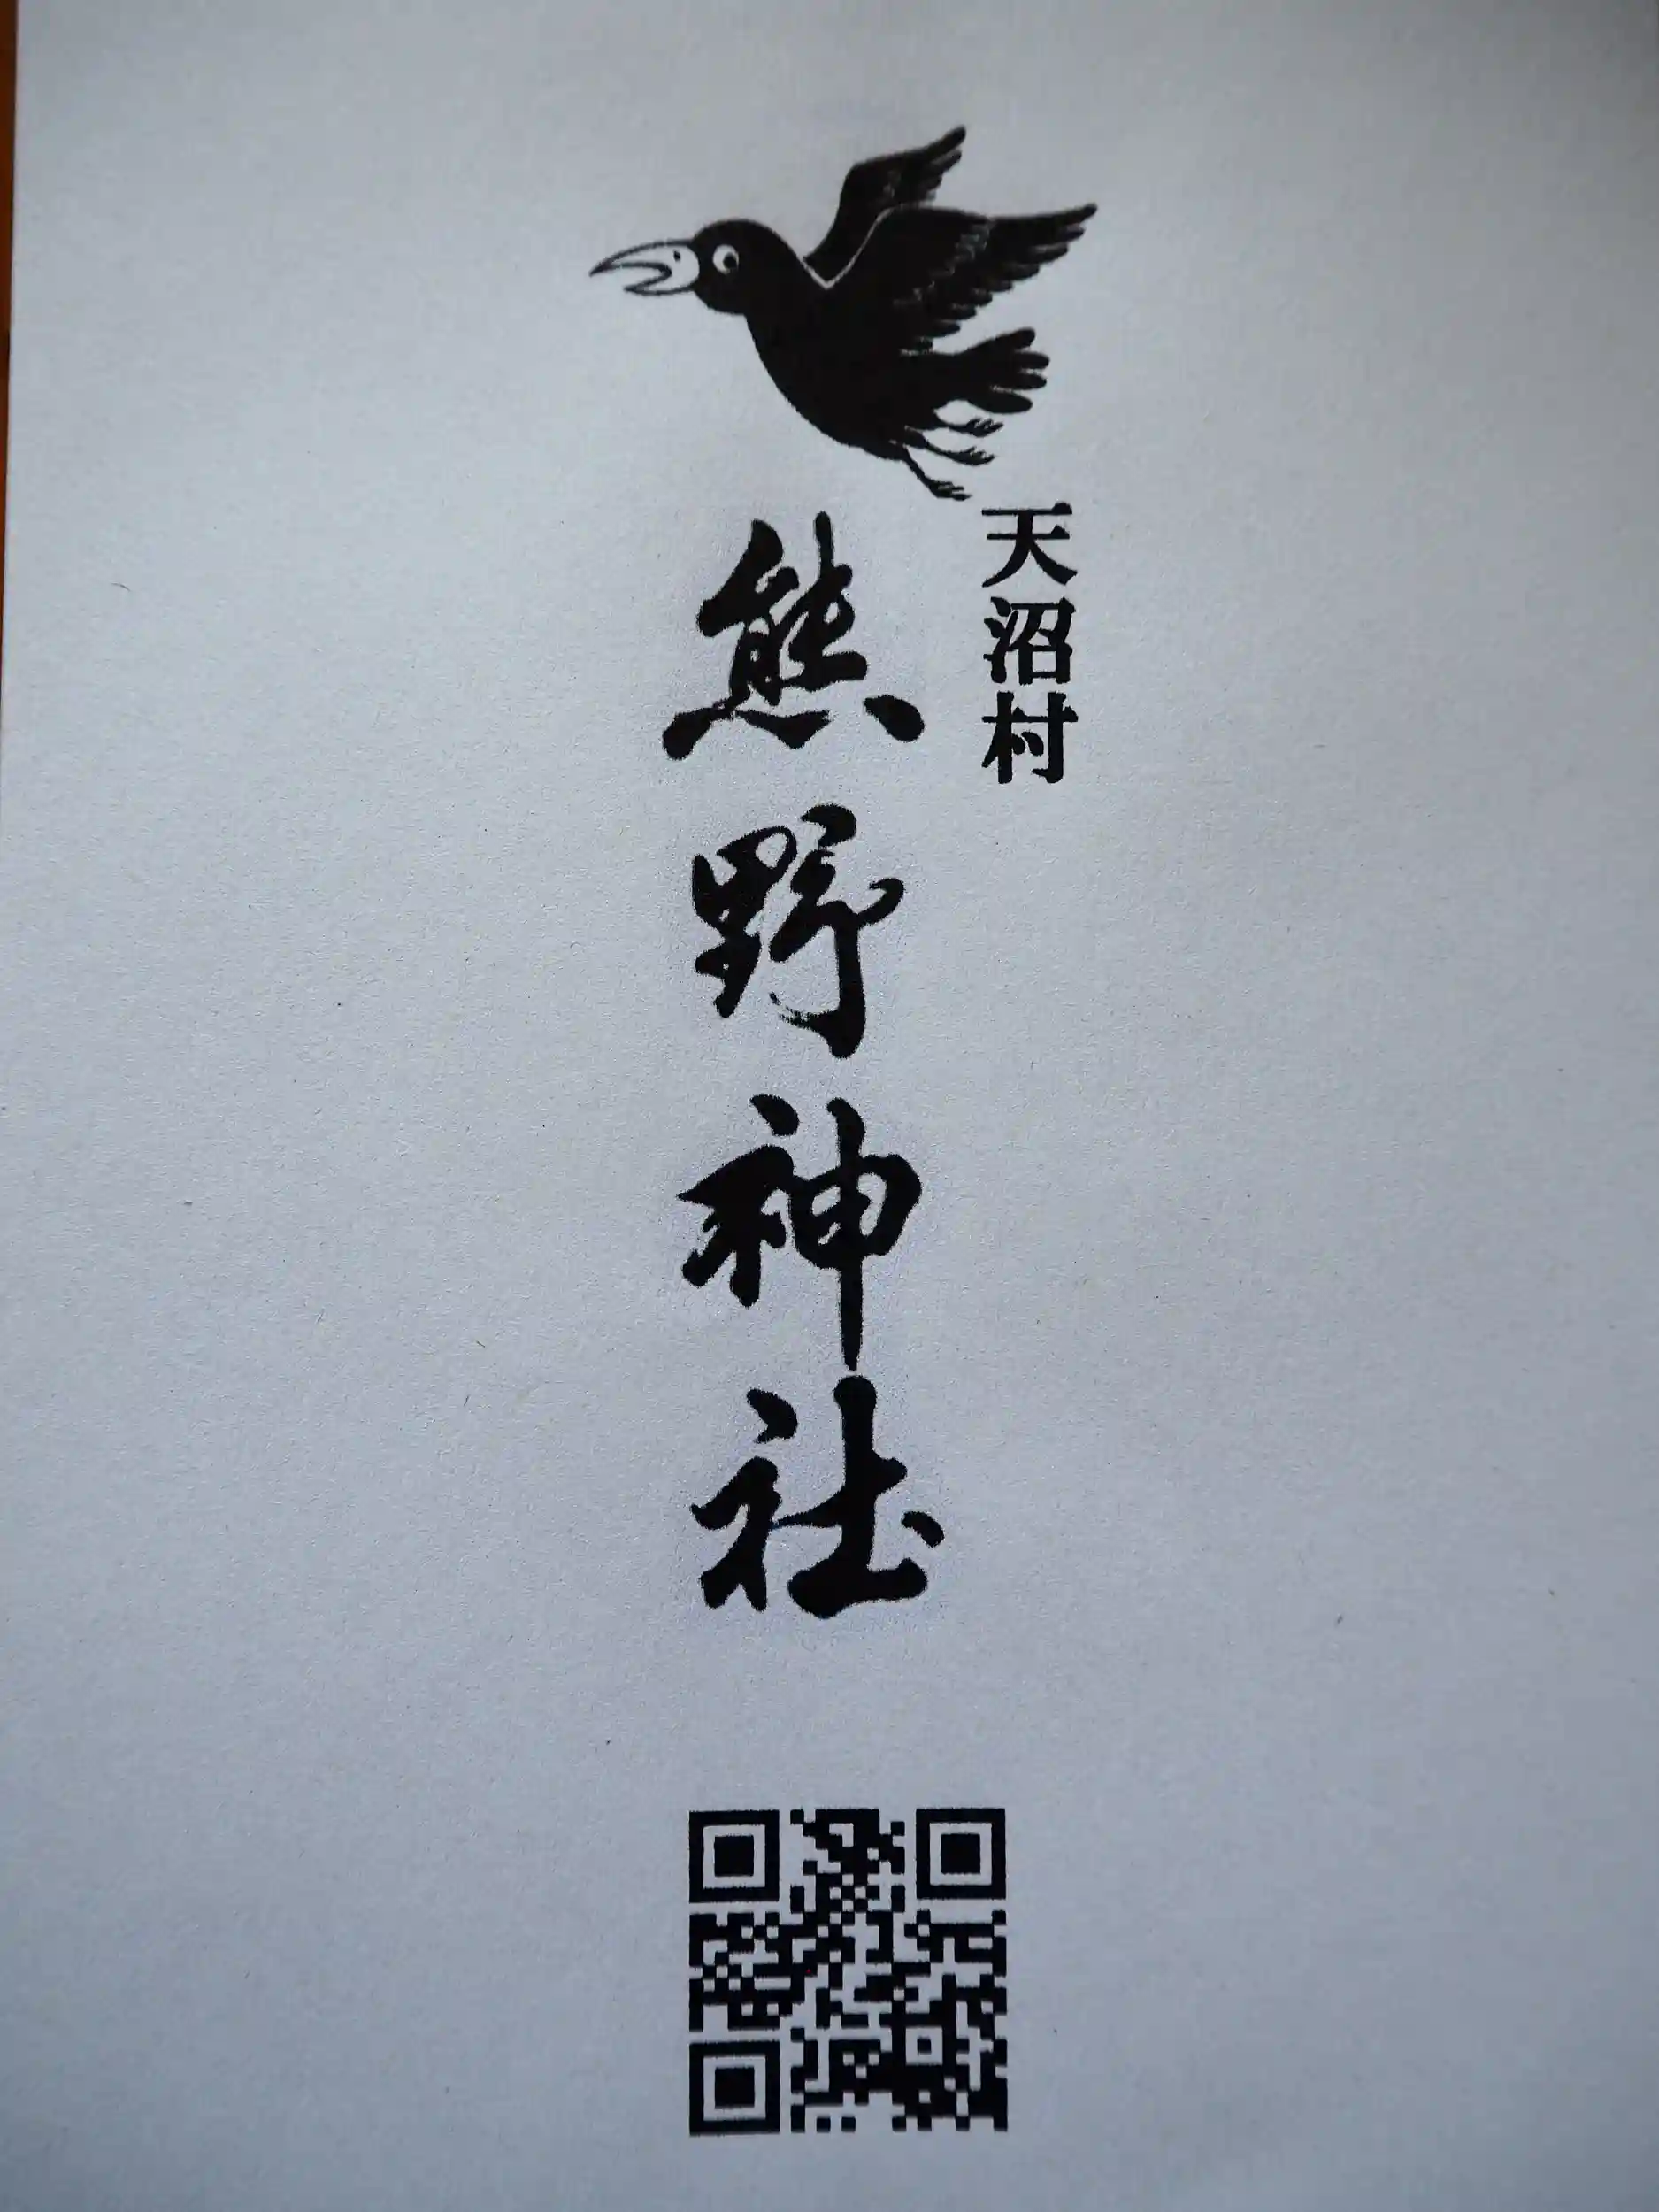 天沼村
熊野神社